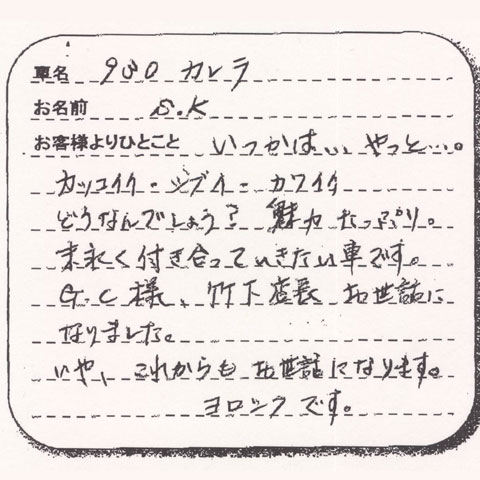 車名 930 カレラ
お名前 S.K
お客様よりひとこと いつかは、、やっと…。
カッコイイ・シブイ・カワイイ
どうなんでしょう？魅力たっぷり。
末永く付き合っていきたい車です。
G.C様、竹下店長 お世話に
なりました。
いや、これからもお世話になります。
ヨロシクです。